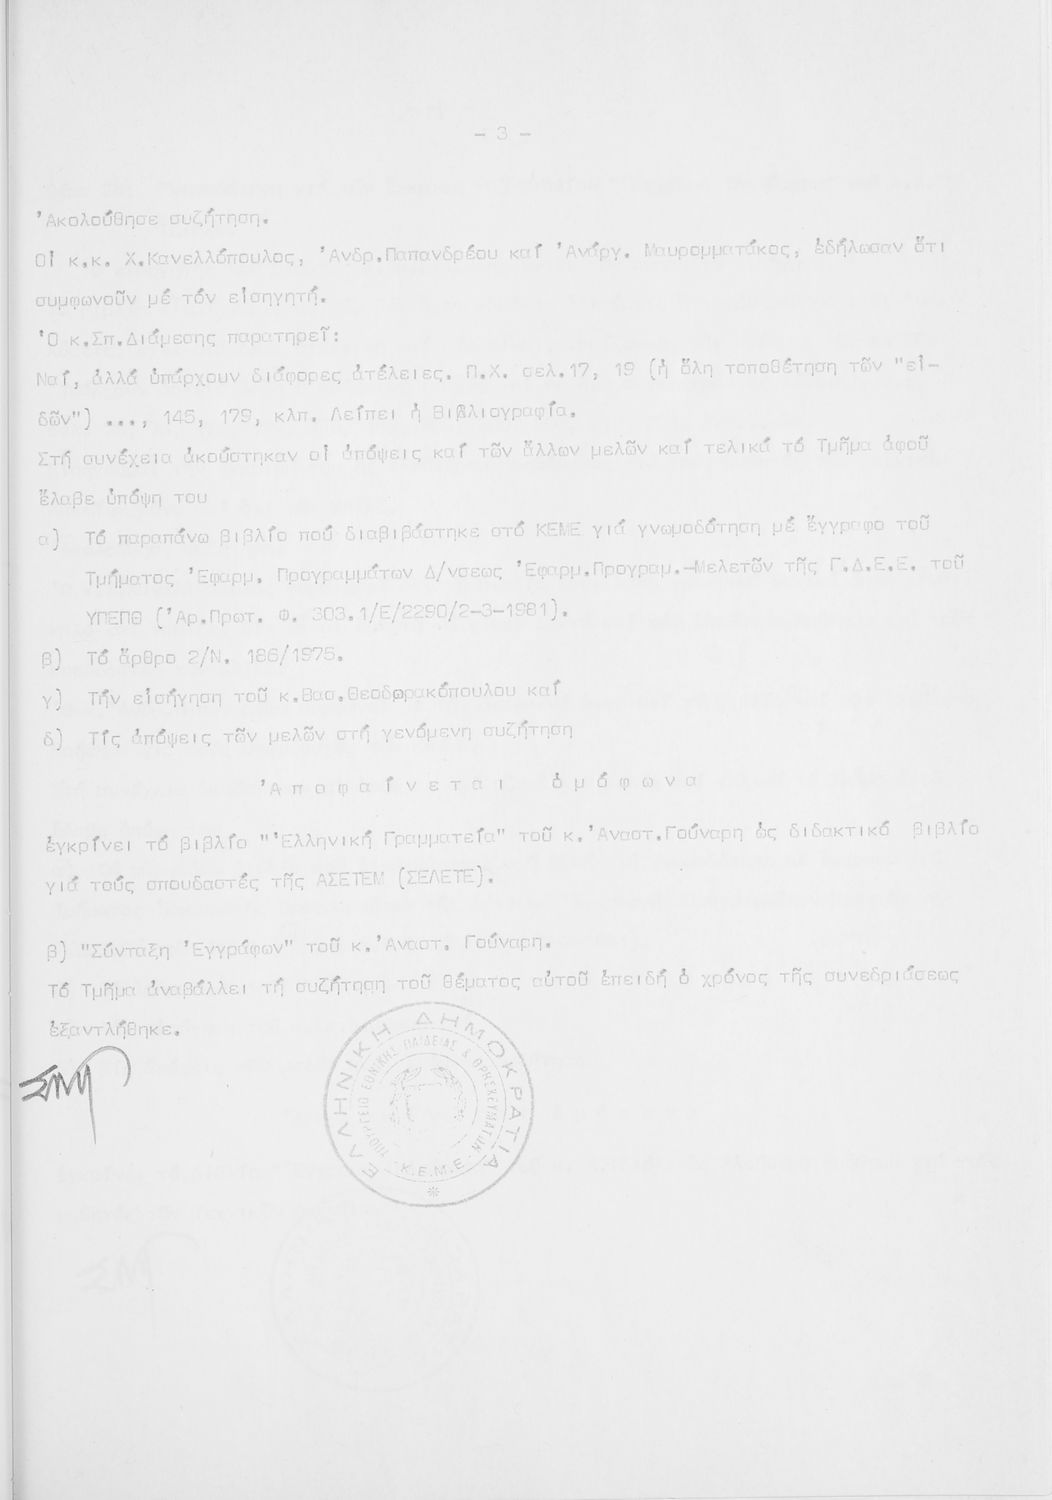 - 3 -
'Ακολούθησε συζήτηση.
Οἱ κ.κ. Χ.Κανελλόπουλος, 'Ανδρ.Παπανδρέου καί 'Ανάργ. Μαυρομματάκος, ἐδήλωσαν ὅτι
συμφωνοῦν μέ τόν εἰσηγητή.
'Ο κ.Σπ.Διάμεσης παρατηρεῖ:
Ναί, ἀλλά ὑπάρχουν διάφορες ἀτέλειες. Π.Χ. σελ.17, 19 (ἡ ὅλη τοποθέτηση τῶν "εἰ-
δῶν") ..., 145, 179, κλπ. Λείπει ἡ Βιβλιογραφία.
Στή συνέχεια ἀκούστηκαν οἱ ἀπόψεις καί τῶν ἄλλων μελῶν καί τελικά τό Τμῆμα ἀφοῦ
ἔλαβε ὑπόψη του
α) Τό παραπάνω βιβλίο πού διαβιβάστηκε στό ΚΕΜΕ γιά γνωμοδότηση μέ ἔγγραφο τοῦ
Τμήματος 'Εφαρμ. Προγραμμάτων Δ/νσεως 'Εφαρμ.Προγραμ.-Μελετῶν τῆς Γ.Δ.Ε.Ε. τοῦ
ΥΠΕΠΘ ('Αρ.Πρωτ. Φ. 303.1/Ε/2290/2-3-1981).
β) Τό ἄρθρο 2/Ν. 186/1975.
γ) Τήν εἰσήγηση τοῦ κ.Βασ.Θεοδωρακόπουλου καί
δ) Τίς ἀπόψεις τῶν μελῶν στή γενόμενη συζήτηση
'Α π ο φ α ί ν ε τ α ι ὁ μ ό φ ω ν α
ἐγκρίνει τό βιβλίο "'Ελληνική Γραμματεία" τοῦ κ.'Αναστ.Γούναρη ὡς διδακτικό βιβλίο
γιά τούς σπουδαστές τῆς ΑΣΕΤΕΜ (ΣΕΛΕΤΕ).
β) "Σύνταξη 'Εγγράφων" τοῦ κ.'Αναστ. Γούναρη.
Τό Τμῆμα ἀναβάλλει τή συζήτηση τοῦ θέματος αὐτοῦ ἐπειδή ὁ χρόνος τῆς συνεδριάσεως
ἐξαντλήθηκε.
ΕΛΛΗΝΙΚΗ ΔΗΜΟΚΡΑΤΙΑ
ΥΠΟΥΡΓΕΙΟ ΕΘΝΙΚΗΣ ΠΑΙΔΕΙΑΣ & ΘΡΗΣΚΕΥΜΑΤΩΝ
Κ.Ε.Μ.Ε.